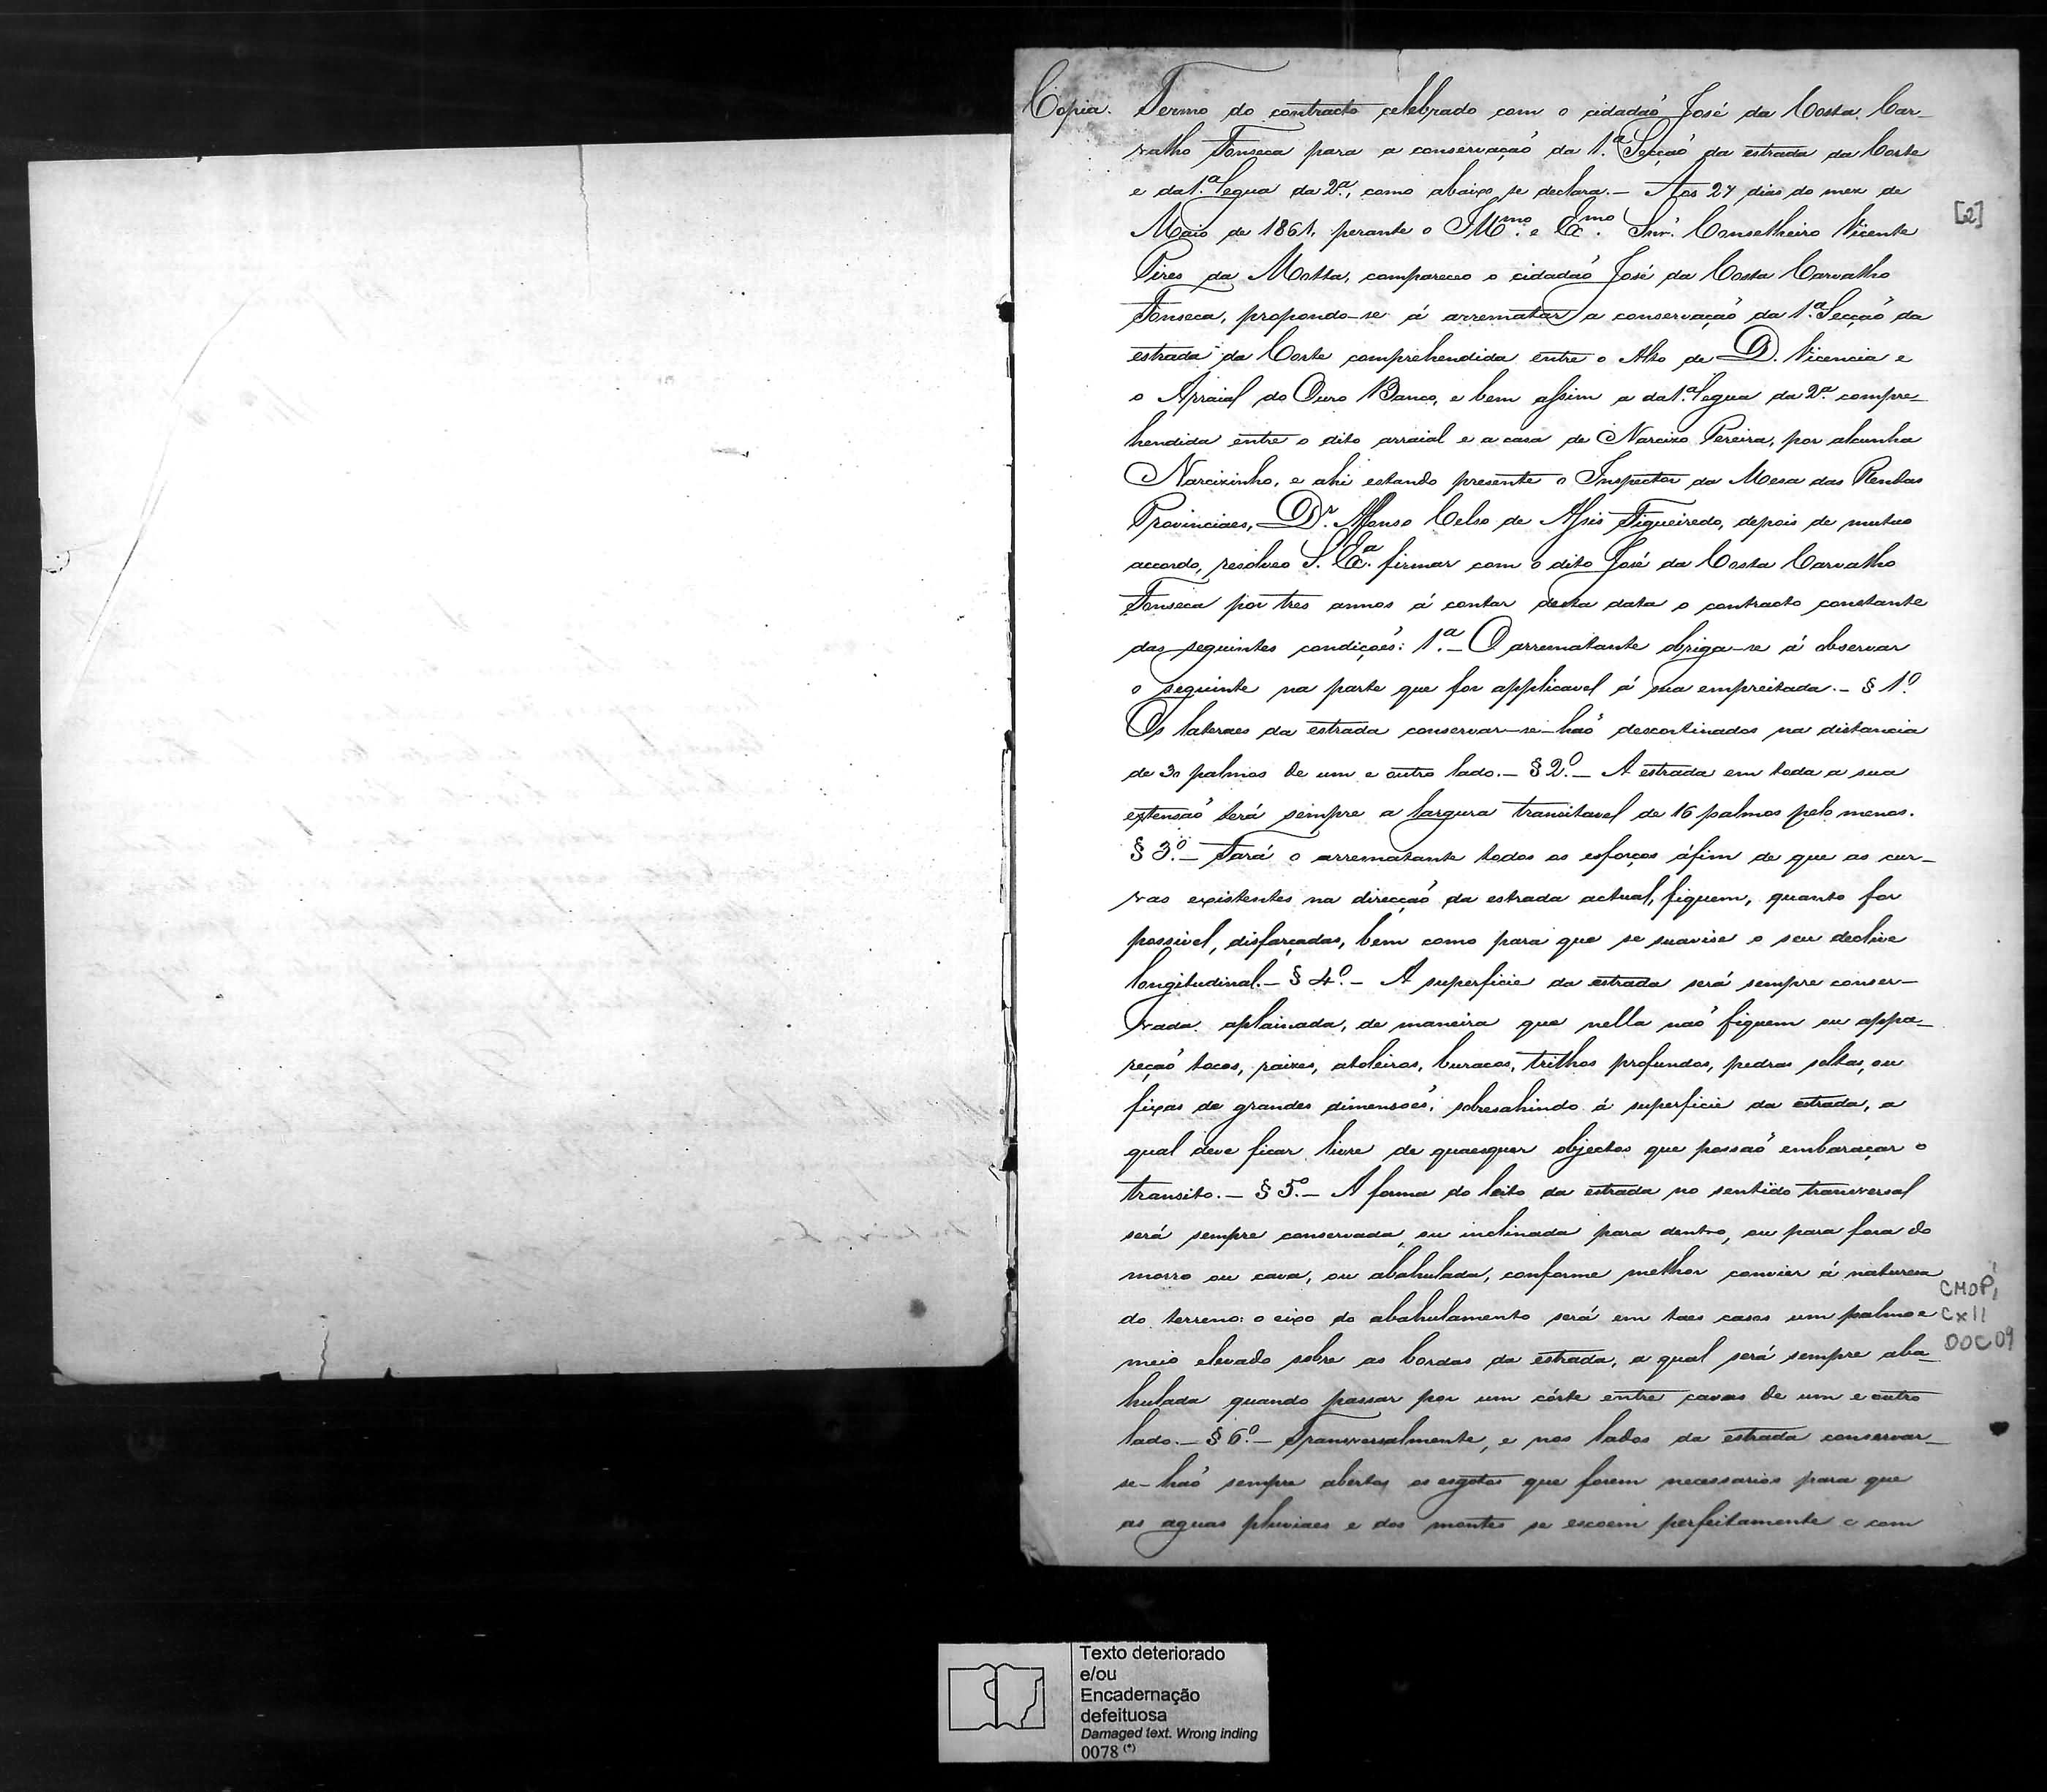 Copia. Termo do contracto celebrado com o cidadaõ José da Costa Car-
valho Fonseca para a conservaçaõ da 1.ª Secçaõ da estrada da Corte
e da 1.ª legua da 2.ª, como abaixo se declara. — Aos 27 dias do mez de
Maio de 1861, perante o Illmo. e Exmo. Snr. Conselheiro Vicente
[2]
Pires da Motta, compareceo o cidadaõ José da Costa Carvalho
Fonseca, propondo-se á arrematar a conservaçaõ da 1.ª Secçaõ da
estrada da Corte comprehendida entre o Alto de D. Vicencia e
o Arraial do Ouro Banco, e bem assim a da 1.ª legua da 2.ª compre-
hendida entre o dito arraial e a casa de Narcizo Pereira, por alcunha
Narcizinho, e ahi estando presente o Inspector da Mesa das Rendas
Provinciaes, Dr. Affonso Celso de Assis Figueiredo, depois de mutuo
accordo, resolveo S. Exª. firmar com o dito José da Costa Carvalho
Fonseca por tres annos á contar desta data o contracto constante
das seguintes condiçoẽs: 1.ª — O arrematante obriga-se á observar
o seguinte na parte que for applicavel á sua empreitada. — § 1.º
Os lateraes da estrada conservar-se-haõ descortinados na distancia
de 30 palmos de um e outro lado. — § 2.º — A estrada em toda a sua
extensaõ terá sempre a largura transitavel de 16 palmos pelo menos.
§ 3.º — Fará o arrematante todos os esforços áfim de que as cur-
vas existentes na direcçaõ da estrada actual, fiquem, quanto for
possivel, disfarçadas, bem como para que se suavise o seu declive
longitudinal. — § 4.º — A superficie da estrada será sempre conser-
vada aplainada, de maneira que nella naõ fiquem ou appa-
reçaõ tocos, raizes, atoleiros, buracos, trilhos profundos, pedras soltas, ou
fixas de grandes dimensoẽs, sobresahindo á superficie da estrada, a
qual deve ficar livre de quaesquer objectos que possaõ embaraçar o
transito. — § 5.º — A forma do leito da estrada no sentido transversal
será sempre conservada, ou inclinada para dentro, ou para fora do
morro ou cava, ou abahulada, conforme melhor convier á naturesa
do terreno: o eixo do abahulamento será em taes casos um palmo e
meio elevado sobre as bordas da estrada, a qual será sempre aba-
hulada quando passar por um córte entre cavas de um e outro
lado. — § 6.º — Transversalmente, e nos lados da estrada conservar-
se-haõ sempre abertos os esgotos que forem necessarios para que
as aguas pluviaes e dos montes se escoem perfeitamente e com
CMOP,
Cx 11
DOC 09
Texto deteriorado
e/ou
Encadernação
defeituosa
Damaged text. Wrong inding
0078 (*)